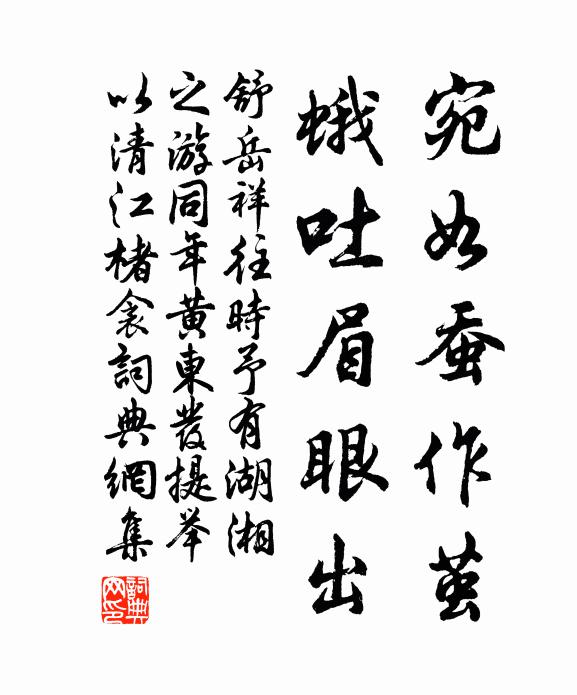 宛如蚕作茧
蛾吐眉眼出
舒岳祥往時予有湖湘
之游同年黄東發提举
以清江楮衾詞典網集
詞典网印